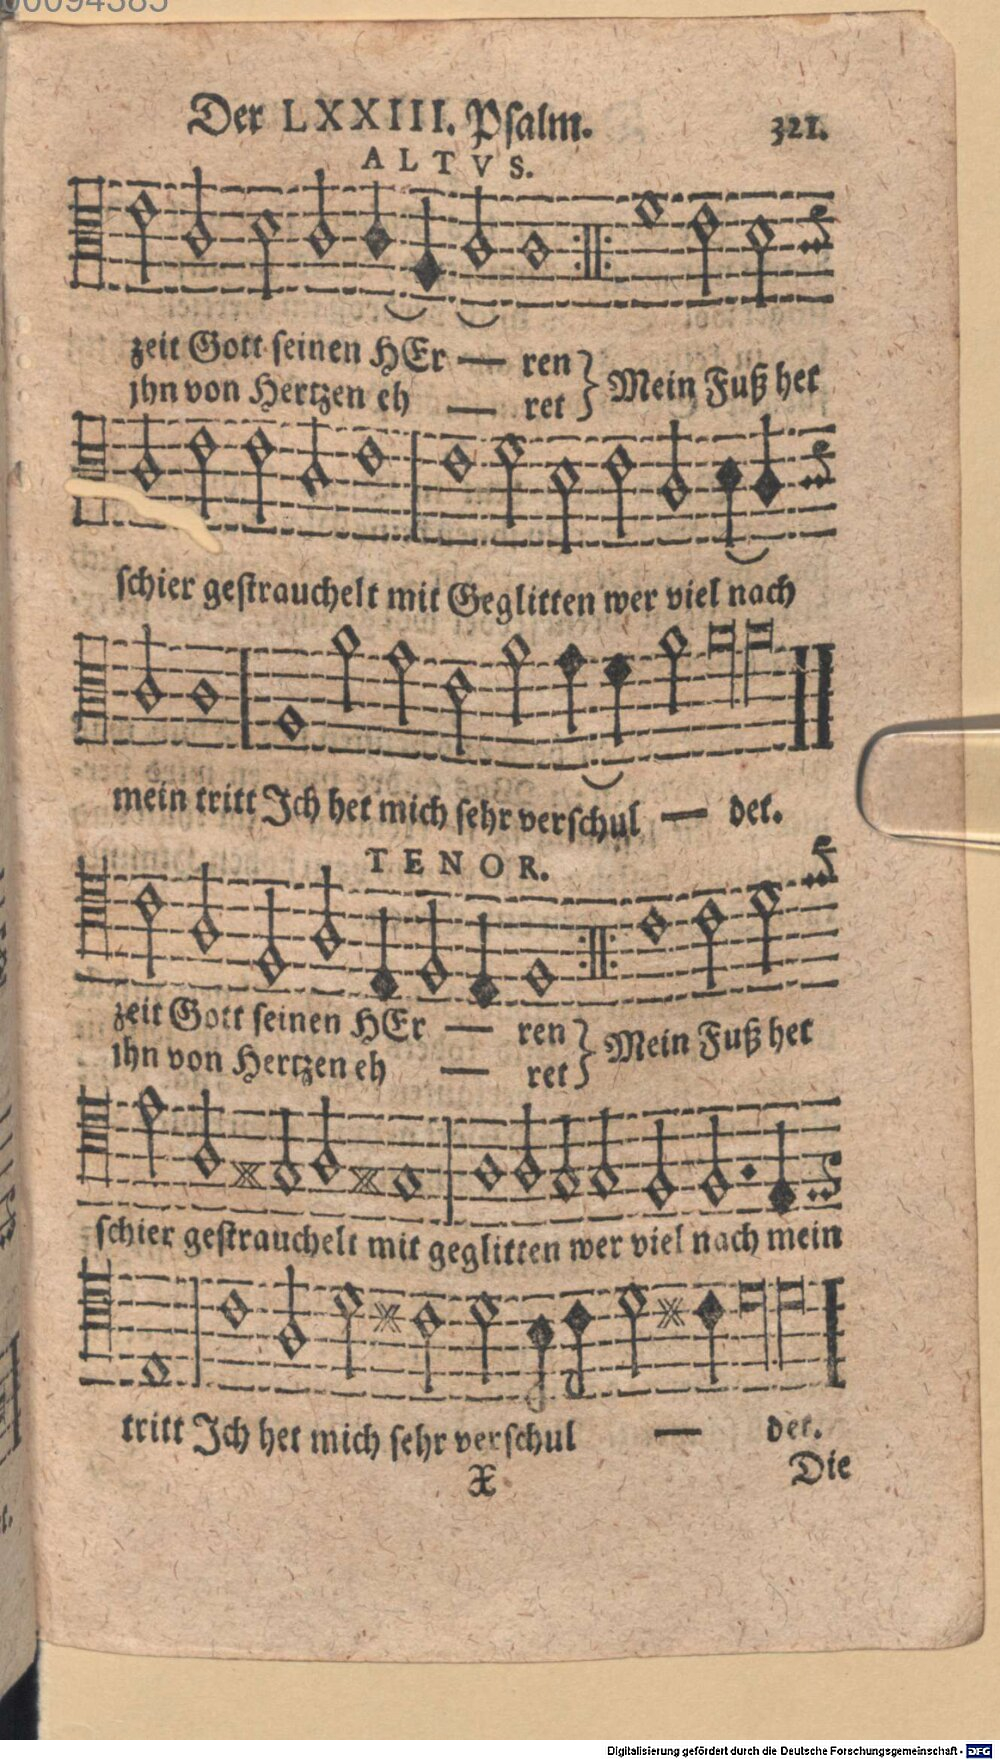 00094385
Der LXXIII. Psalm. 321.
ALTVS.
zeit Gott seinen HEr — ren
jhn von Hertzen eh — ret } Mein Fuß het
schier gestrauchelt mit Geglitten wer viel nach
mein tritt Ich het mich sehr verschul — det.
TENOR.
zeit Gott seinen HEr — ren
ihn von Hertzen eh — ret } Mein Fuß het
schier gestrauchelt mit geglitten wer viel nach mein
tritt Ich het mich sehr verschul — det.
X Die
Digitalisierung gefördert durch die Deutsche Forschungsgemeinschaft - DFG